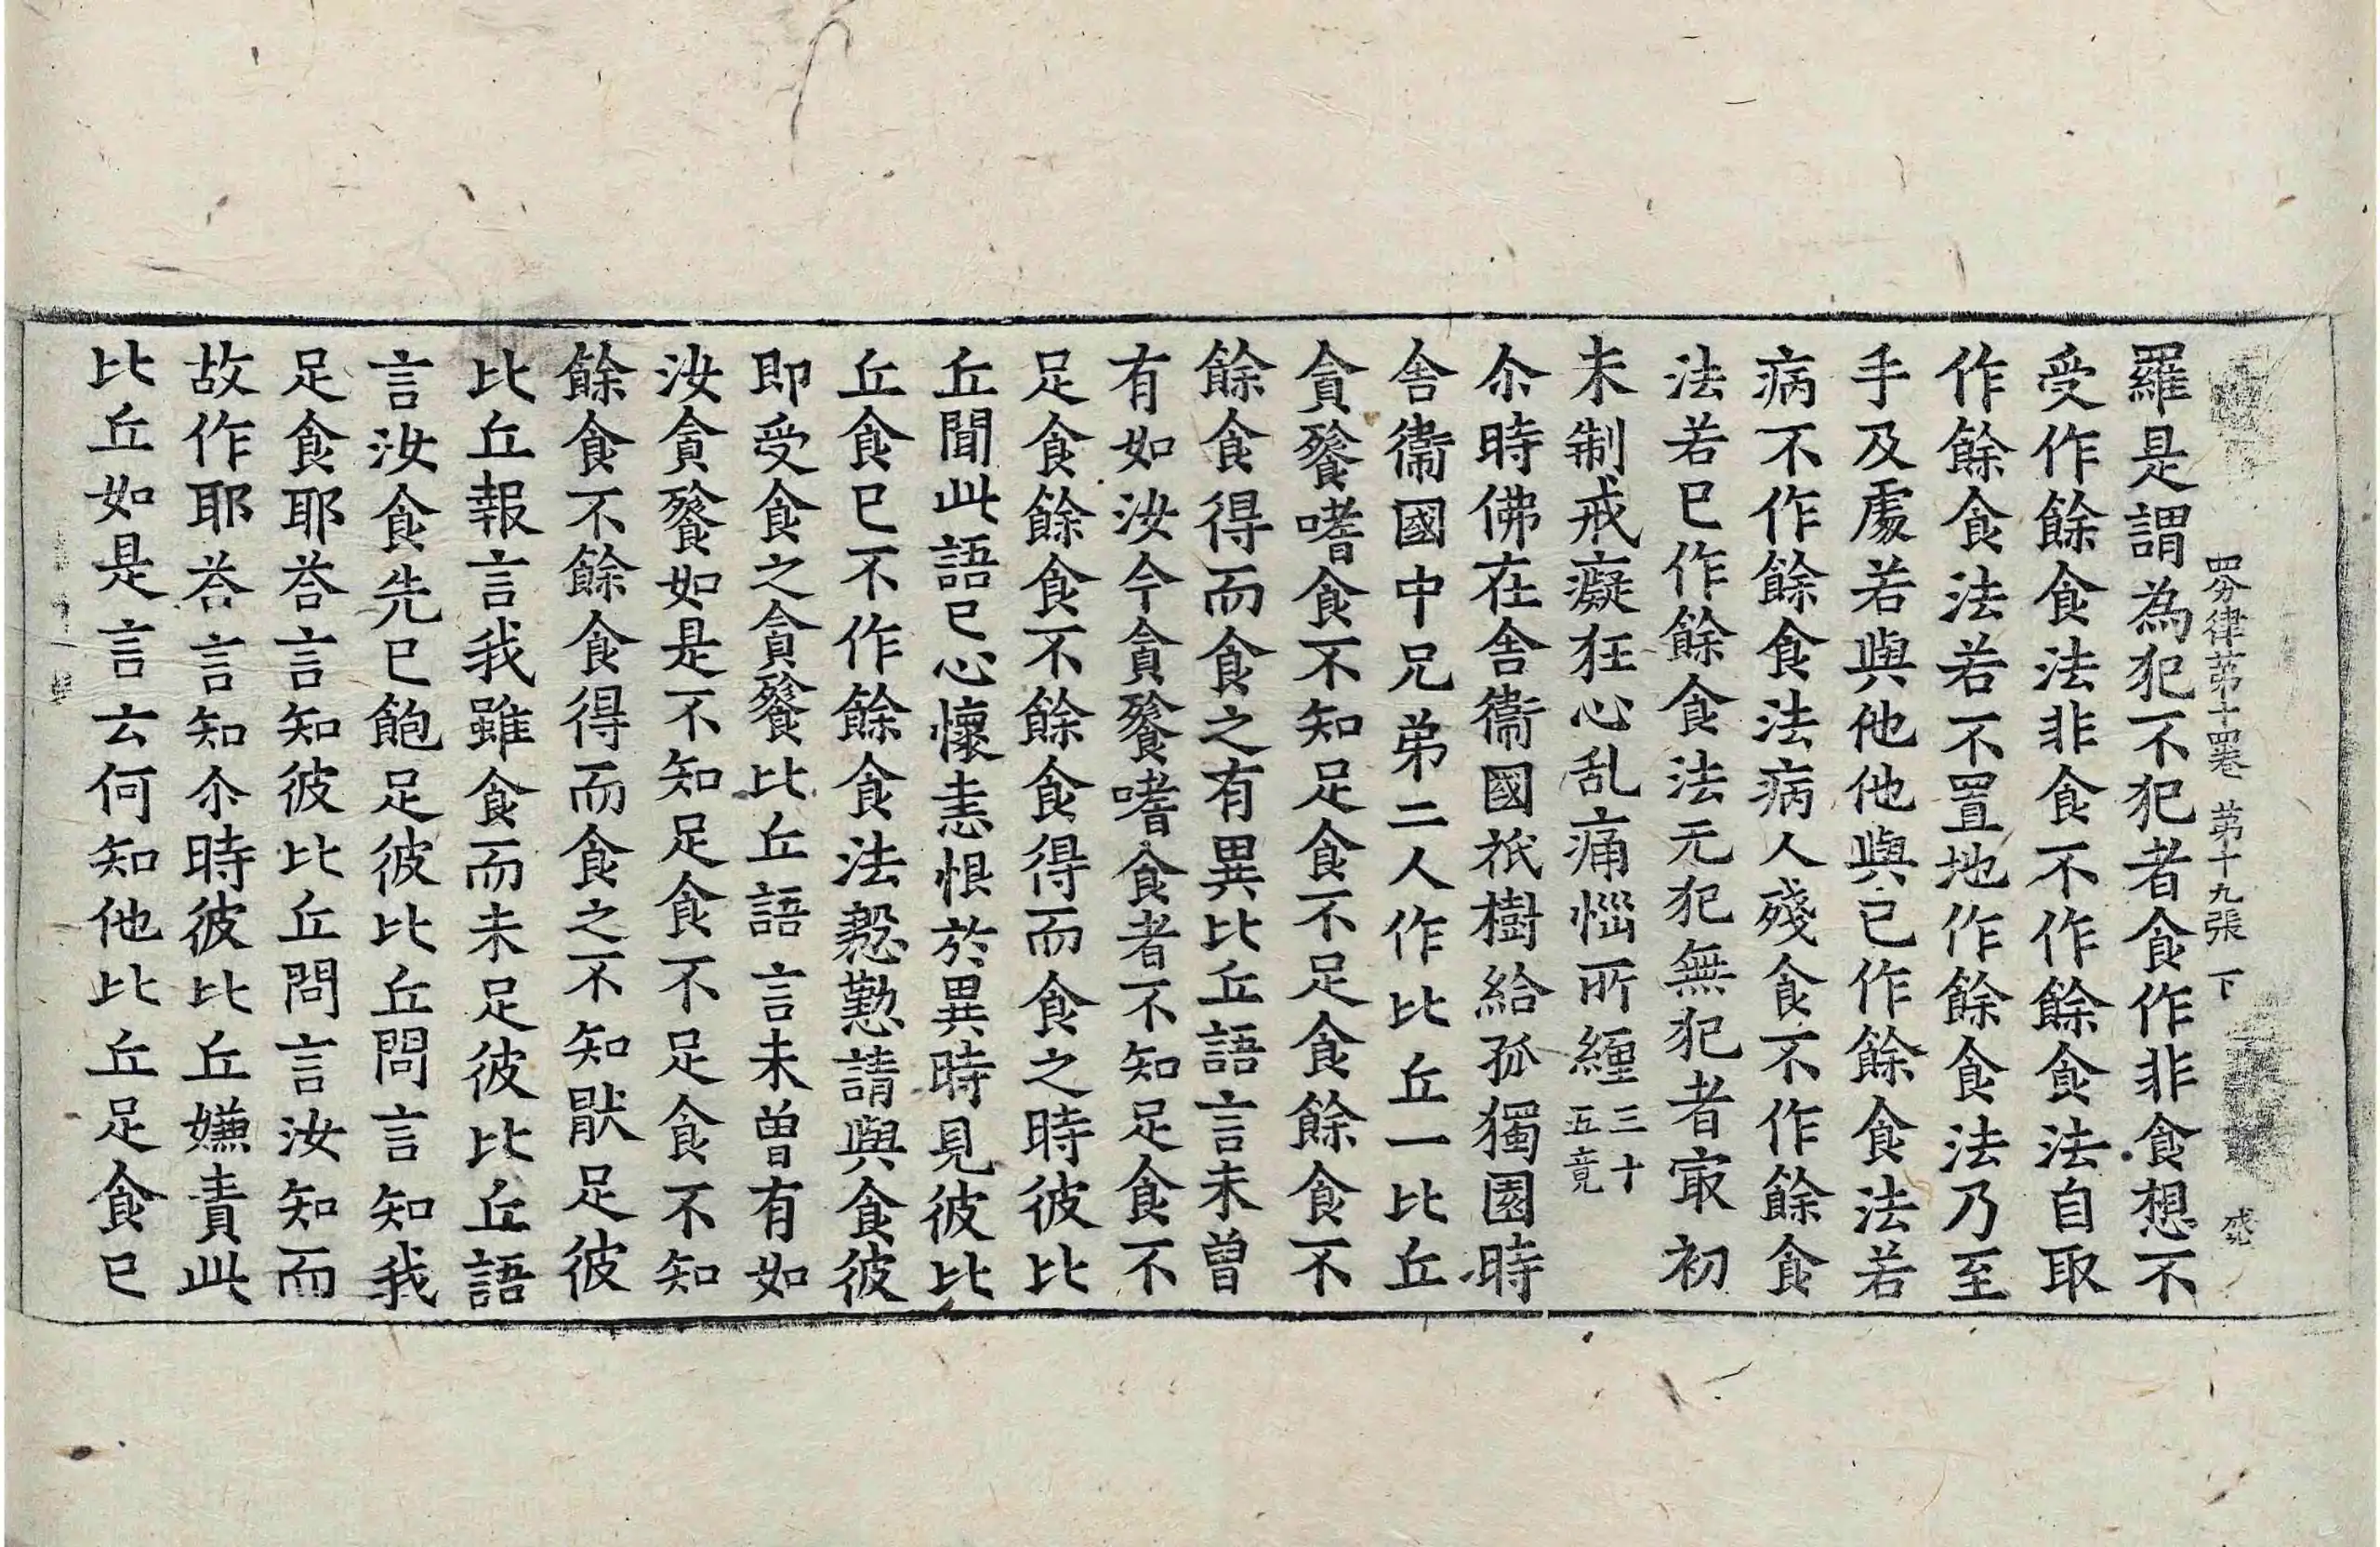 四分律苐十四卷 苐十九張 下
羅是謂為犯不犯者食作非食想不
受作餘食法非食不作餘食法自取
作餘食法若不置地作餘食法乃至
手及處若與他他與已作餘食法若
病不作餘食法病人殘食不作餘食
法若已作餘食法无犯無犯者㝡初
未制戒癡狂心乱痛惱所纏三十五竟
尒時佛在舎衞國祇樹給孤獨園時
舎衞國中兄弟二人作比丘一比丘
貪餮嗜食不知足食不足食餘食不
餘食得而食之有異比丘語言未曾
有如汝今貪餮嗜食者不知足食不
足食餘食不餘食得而食之時彼比
丘聞此語已心懷恚恨於異時見彼比
丘食已不作餘食法慇懃請與食彼
即受食之貪餮比丘語言未曾有如
汝貪餮如是不知足食不足食不知
餘食不餘食得而食之不知猒足彼
比丘報言我雖食而未足彼比丘語
言汝食先已飽足彼比丘問言知我
足食耶荅言知彼比丘問言汝知而
故作耶荅言知尒時彼比丘嫌責此
比丘如是言云何知他比丘足食已